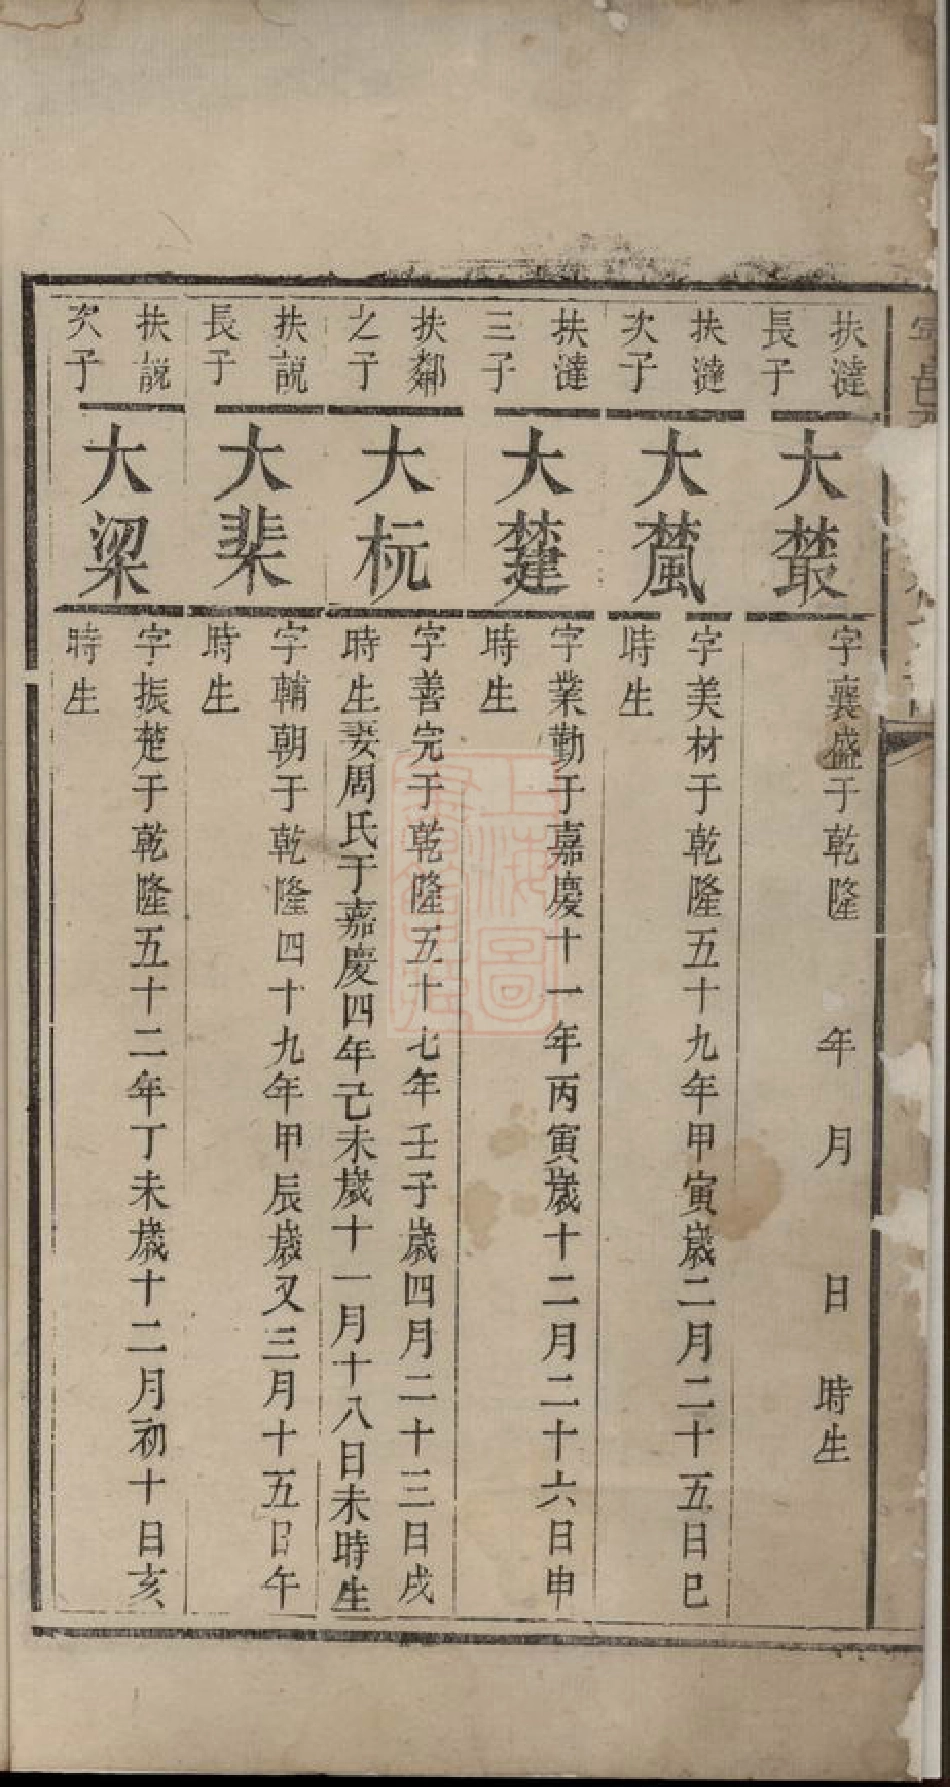 扶澾
長子
大藂
字襄盛于乾隆 年 月 日 時生
扶澾
次子
大檒
字美材于乾隆五十九年甲寅歲二月二十五日巳
時生
扶澾
三子
字業勤于嘉慶十一年丙寅歲十二月二十六日申
時生
扶鄰
之子
大杬
字善完于乾隆五十七年壬子歲四月二十三日戌
時生妻周氏于嘉慶四年己未歲十一月十八日未時生
扶説
長子
大棐
字輔朝于乾隆四十九年甲辰歲又三月十五日午
時生
扶説
次子
大梁
字振楚于乾隆五十二年丁未歲十二月初十日亥
時生